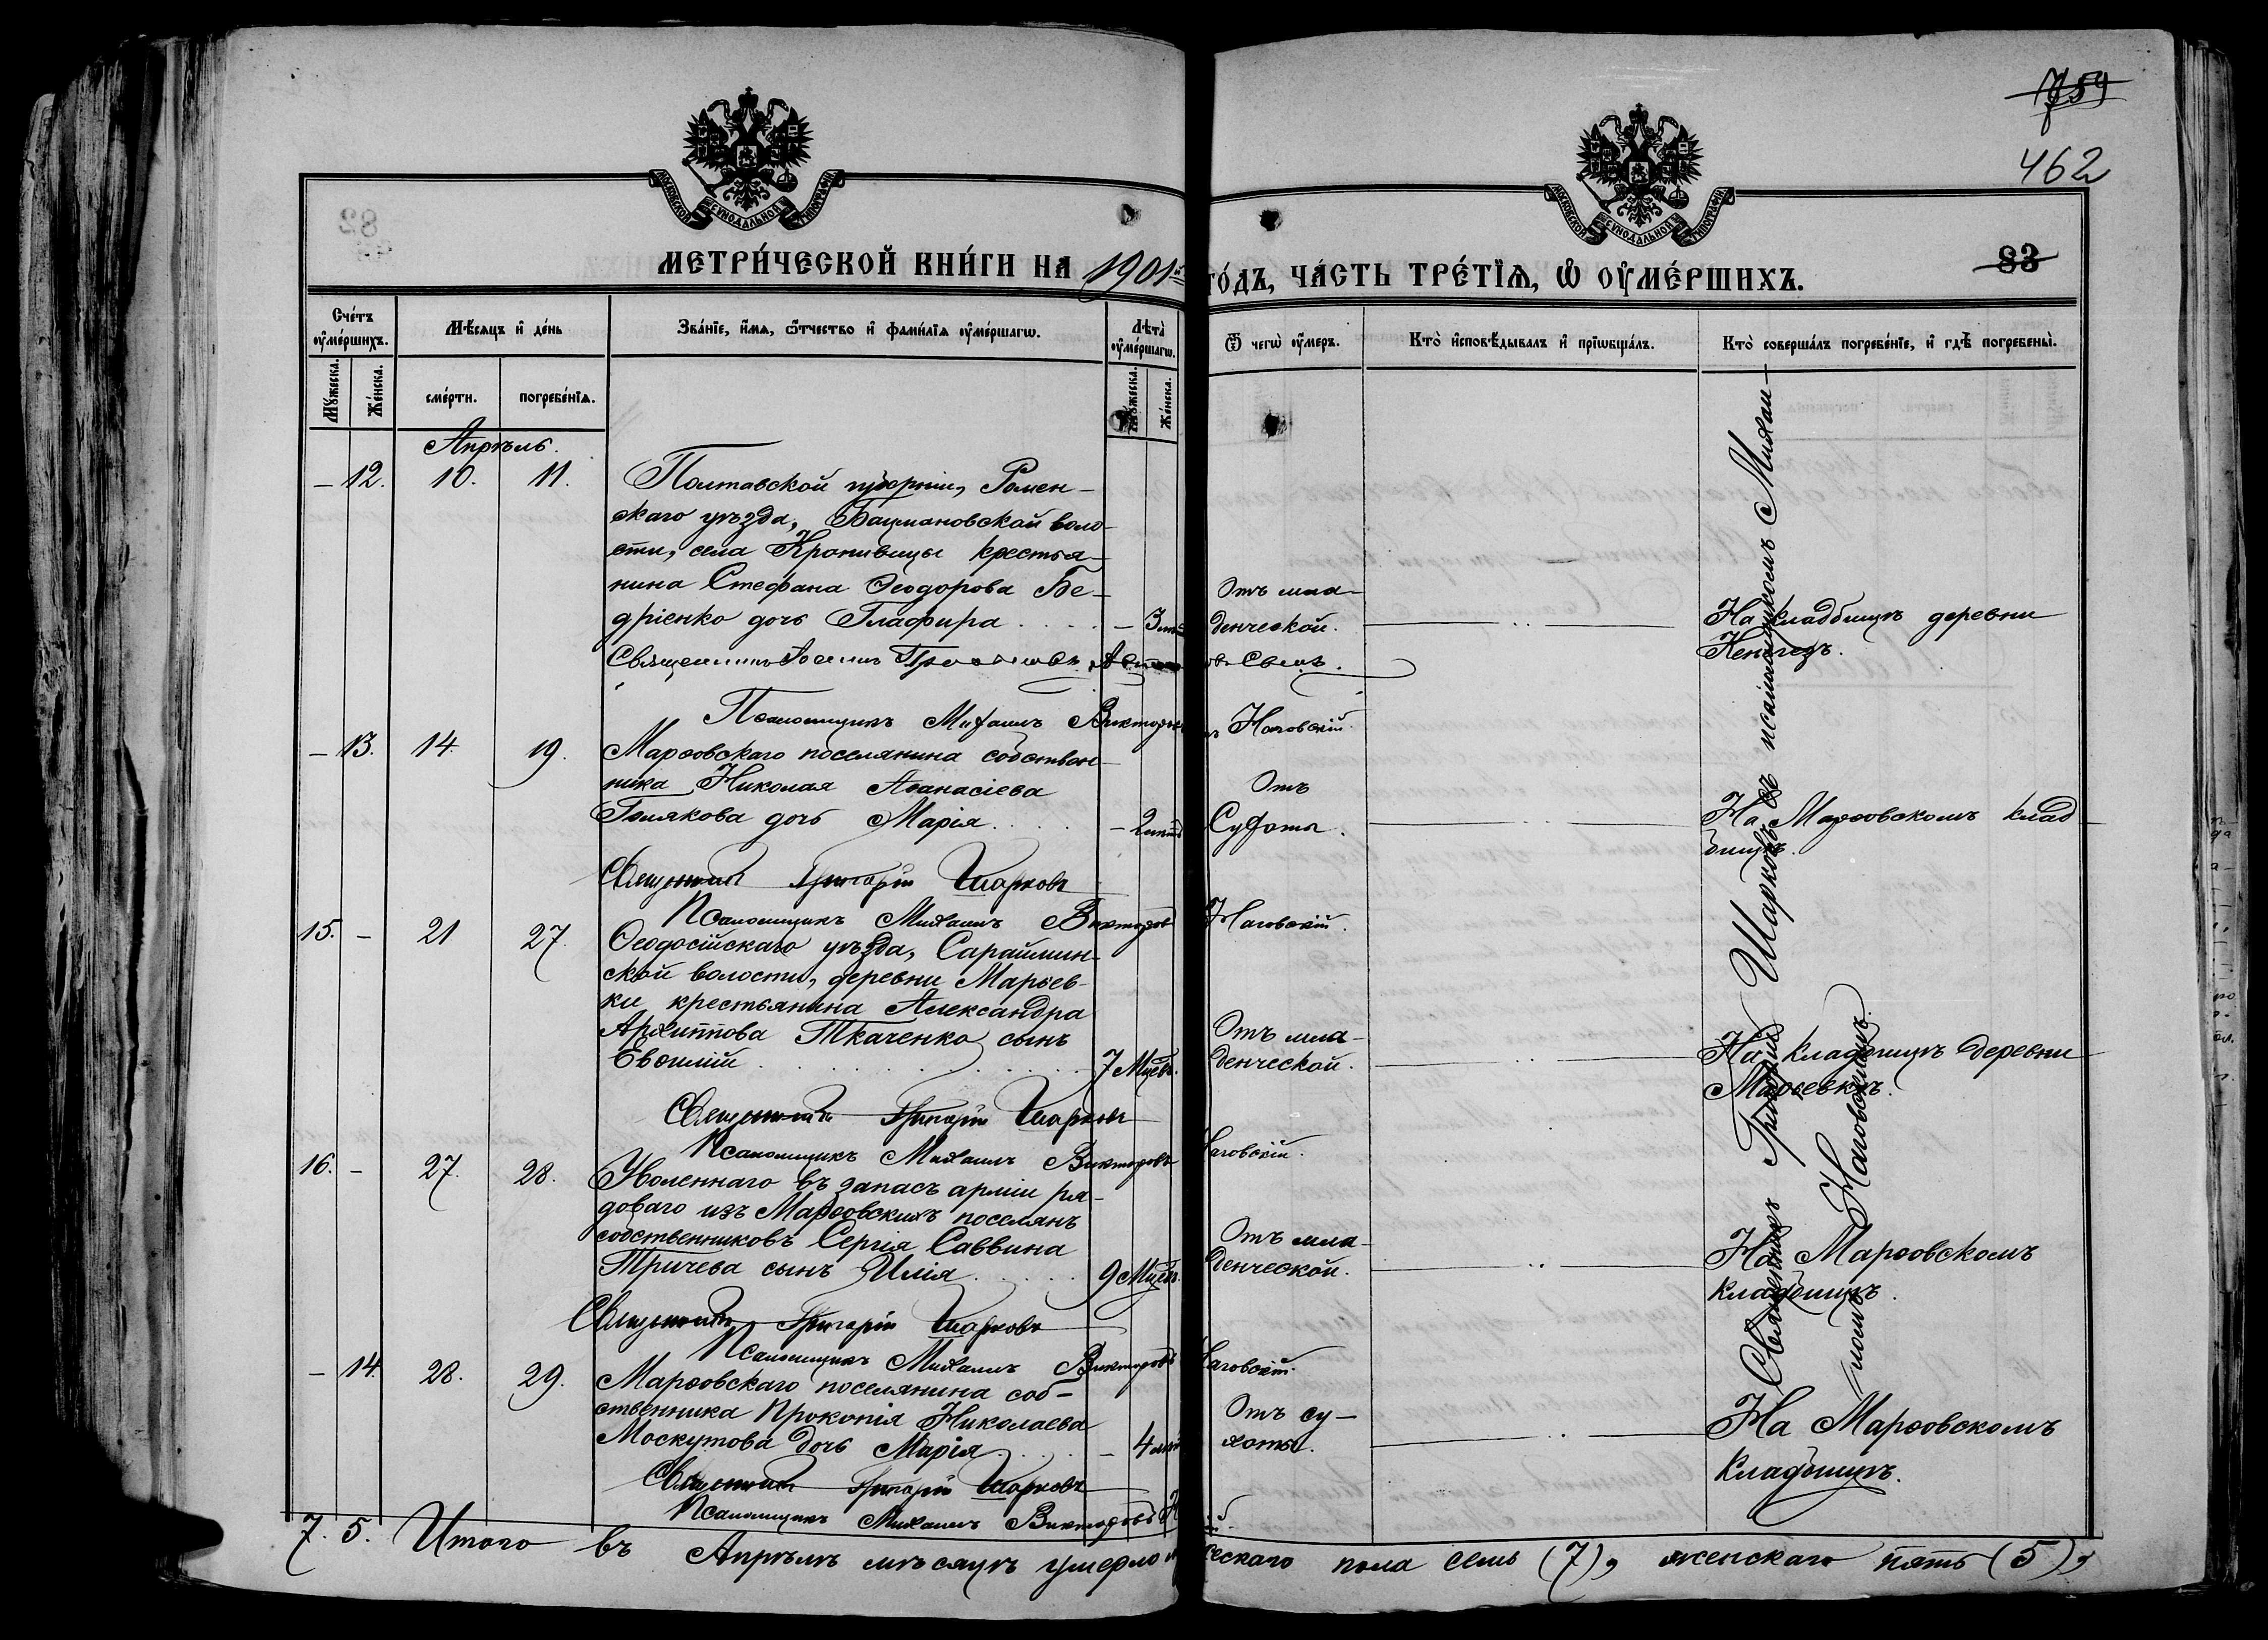 759
462
МОСКОВСКОЙ СѴНОДАЛЬНОЙ ТИПОГРАФІИ
МОСКОВСКОЙ СѴНОДАЛЬНОЙ ТИПОГРАФІИ
82
83
МЕТРИ́ЧЕСКОЙ КНИ́ГИ НА 1901й ГО́ДЪ, ЧА́СТЬ ТРЕ́ТЇѦ, Ѡ҆ ОУ҆МЕ́РШИХЪ.
Сче́тъ оу҆ме́ршихъ.
Мѣ́сяцъ и҆ де́нь
Зва́нїе, и҆́мѧ, ѻ҆́тчество и҆ фами́лїѧ оу҆ме́ршагѡ.
Лѣта̀ оу҆ме́ршагѡ.
Ѿ чегѡ̀ оу҆́меръ.
Кто̀ и҆сповѣ́дывалъ и҆ прїѡбща́лъ.
Кто̀ соверша́лъ погребе́нїе, и҆ гдѣ̀ погребены̀.
Мꙋ́жеска.
Же́нска.
сме́рти.
погребе́нїѧ.
Мꙋ́жеска.
Же́нска.
Апрѣль.
– 12. 10. 11. Полтавской губерніи, Ромен-
скаго уѣзда, Бацмановской воло-
сти, села Кропивицы крестья-
нина Стефана Ѳеодорова Бе-
дріенко дочь Глафира . . . . – 3
Отъ мла-
денческой.
На кладбищѣ деревни
Кенегезъ.
Священникъ
Псаломщикъ Михаилъ Викторовъ Наговскій.
– 13. 14. 19. Марѳовскаго поселянина собствен-
ника Николая Аѳанасіева
Полякова дочь Марія . . . . – 2
Отъ
Сухоты.
На Марѳовскомъ клад-
бищѣ.
Священникъ Григорій Шарковъ
Псаломщикъ Михаилъ Викторовъ Наговскій.
15. – 21 27. Ѳеодосійскаго уѣзда, Сараймин-
ской волости, деревни Марьев-
ки крестьянина Александра
Архиппова Ткаченко сынъ
Евѳимій . . . . 7 Мцевъ.
Отъ мла-
денческой.
На кладбищѣ деревни
Марьевкѣ.
Священникъ Григорій Шарковъ
Псаломщикъ Михаилъ Викторовъ Наговскій.
16. – 27. 28. Уволеннаго въ запасъ арміи ря-
доваго изъ Марѳовскихъ поселянъ
собственниковъ Сергія Саввина
Тричева сынъ Илія . . . . 9 Мцевъ.
Отъ мла-
денческой.
На Марѳовскомъ
кладбищѣ.
Священникъ Григорій Шарковъ
Псаломщикъ Михаилъ Викторовъ Наговскій.
– 14. 28. 29. Марѳовскаго поселянина соб-
ственника Прокопія Николаева
Москутова дочь Марія . . . . – 4
Отъ су-
хоты.
На Марѳовскомъ
кладбищѣ.
Священникъ Григорій Шарковъ
Псаломщикъ Михаилъ Викторовъ
Священникъ Григорій Шарковъ съ псаломщикомъ Михаи-
ломъ Наговскимъ.
7. 5. Итого въ Апрѣлѣ мѣсяцѣ умерло мужескаго пола семь (7), женскаго пять (5),